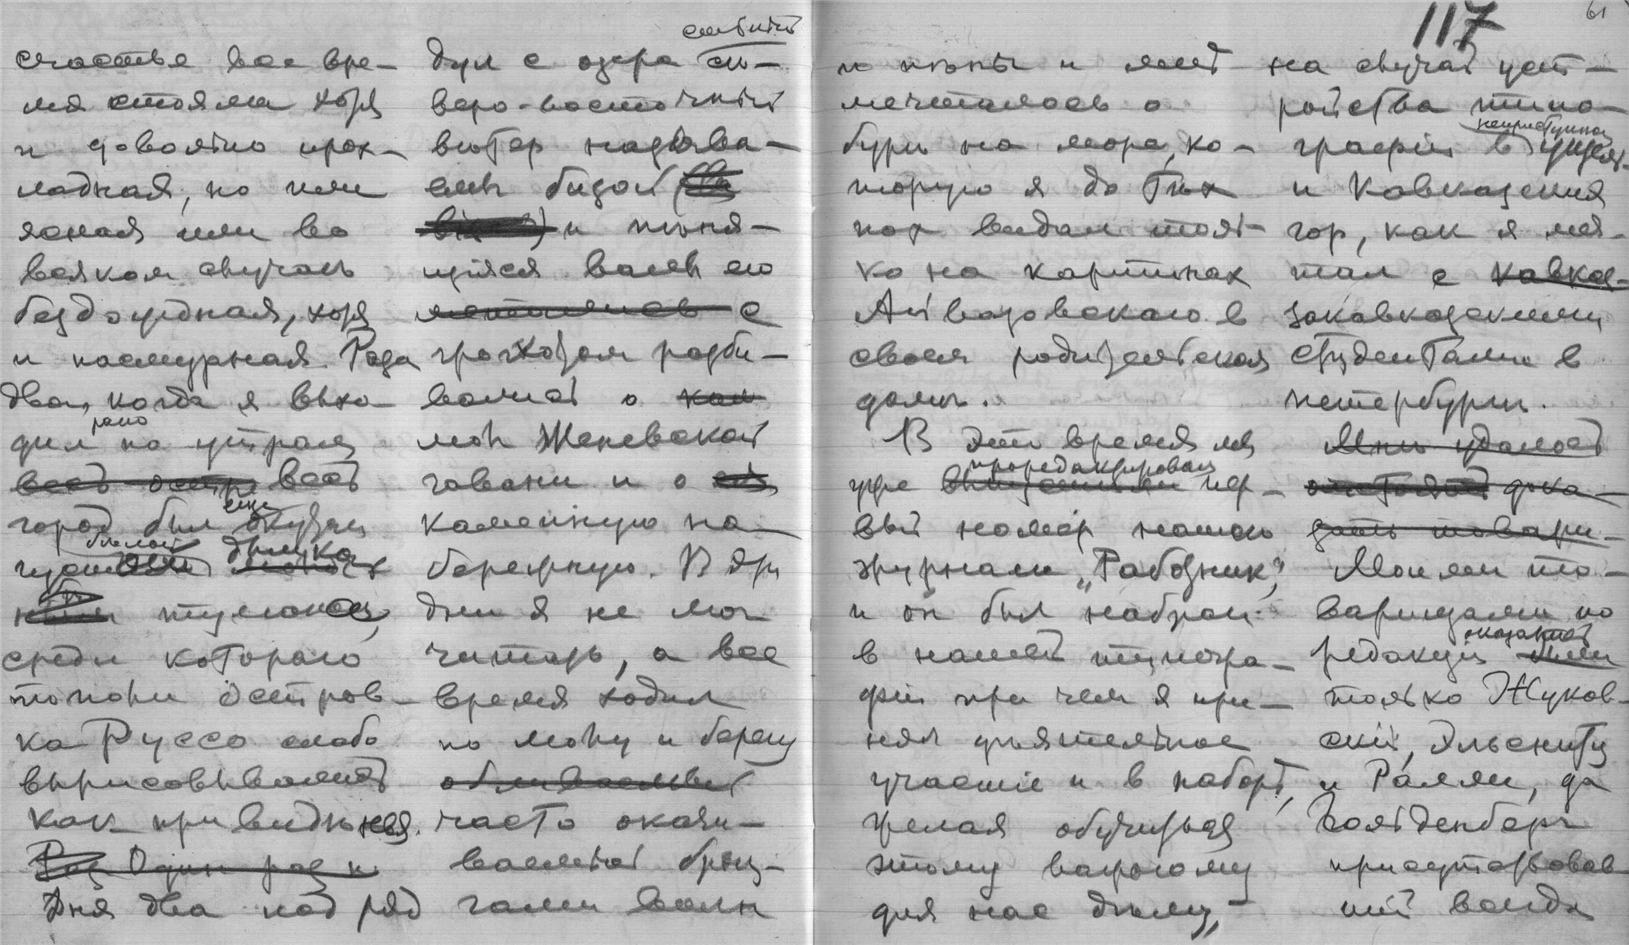 счастье все вре-
мя стояла хотя
и довольно прох-
ладная, но или
ясная или во
всяком случаѣ
бездождная, хотя
и пасмурная. Раза
два, когда я выхо-
рано
дил по утрам
весь остро весь
еще
город был окутан
густым
бѣлой дымкой
тумана,
среди котораго
тополи остров-
ка Руссо слабо
вырисовывались
как привидѣнья.
Раз Один раз и
Дня два подряд
сильный
дул с озера сѣ-
веро-восточный
вѣтер называ-
емый бизой
и пѣня-
щіяся валы его
метались с
грохотом разби-
вались о кам
мол Женевской
гавани и о
каменную на-
бережную. В эти
дни я не мог
читать, а все
время ходил
по молу и берегу
обливаемый
часто окачи-
ваемый брыз-
гами волн
117
61
и пѣны и мнѣ
мечталось о
бурѣ на морѣ, ко-
торую я до тѣх
пор видал толь-
ко на картинах
Айвазовскаго в
своем родительском
домѣ.
В это время мы
проредактировали
уже выпустили пер-
вый номер нашего
журнала „Работник",
и он был набран
в нашей типогра-
фіи при чем я при-
нял дѣятельное
участіе и в наборѣ,
желая обучиться
этому важному
для нас дѣлу,
на случай уст-
ройства типо-
неприступном
графіи в ущельях
и Кавказских
гор, как я меч-
тал с кавказ-
закавказскими
студентами в
петербургѣ.
Мнѣ удалось
дока-
зать товари-
Моими то-
варищами по
оказались
редакціи были
только Жуков-
скій, Эльсниц
и Ралли, да
Гольденберг
присутствовав-
шій всегда